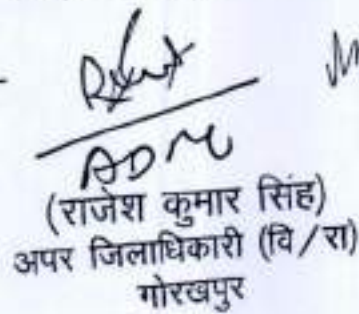 ADM
(राजेश कुमार सिंह)
अपर जिलाधिकारी (वि/रा)
गोरखपुर